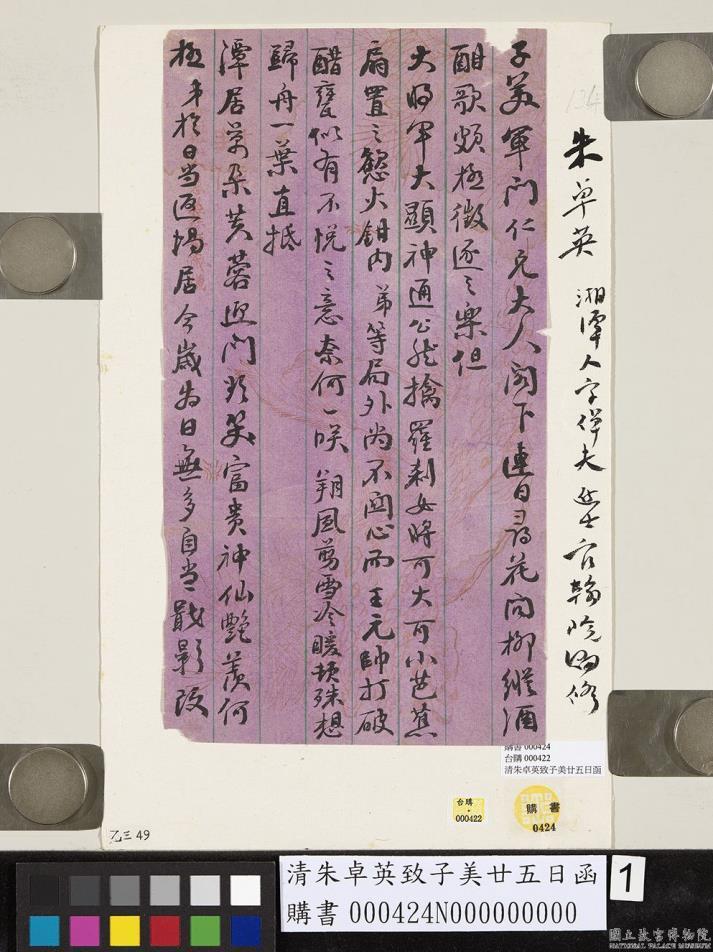 朱卓英 湘潭人字倬夫進士官翰院編修
子美軍门仁兄大人閣下連日尋花问柳縱酒
酣歌頗極徵逐之樂但
大將軍大顯神通公然擒羅剎女將可大可小芭蕉
扇置之慾火鉗内弟等局外尚不関心而王元帥打破
醋甕似有不悦之意奈何一咲朔風剪雪冷暖頓殊想
歸舟一葉直抵
潭居萬朶芙蓉迎门破笑富貴神仙艷羨何
極弟於日当返塲居今歲为日無多自当戢影改
購書 000424
台購 000422
清朱卓英致子美廿五日函
台購
000422
購書
0424
乙三49
清朱卓英致子美廿五日函
購書 000424N000000000
1
國立故宮博物院
NATIONAL PALACE MUSEUM